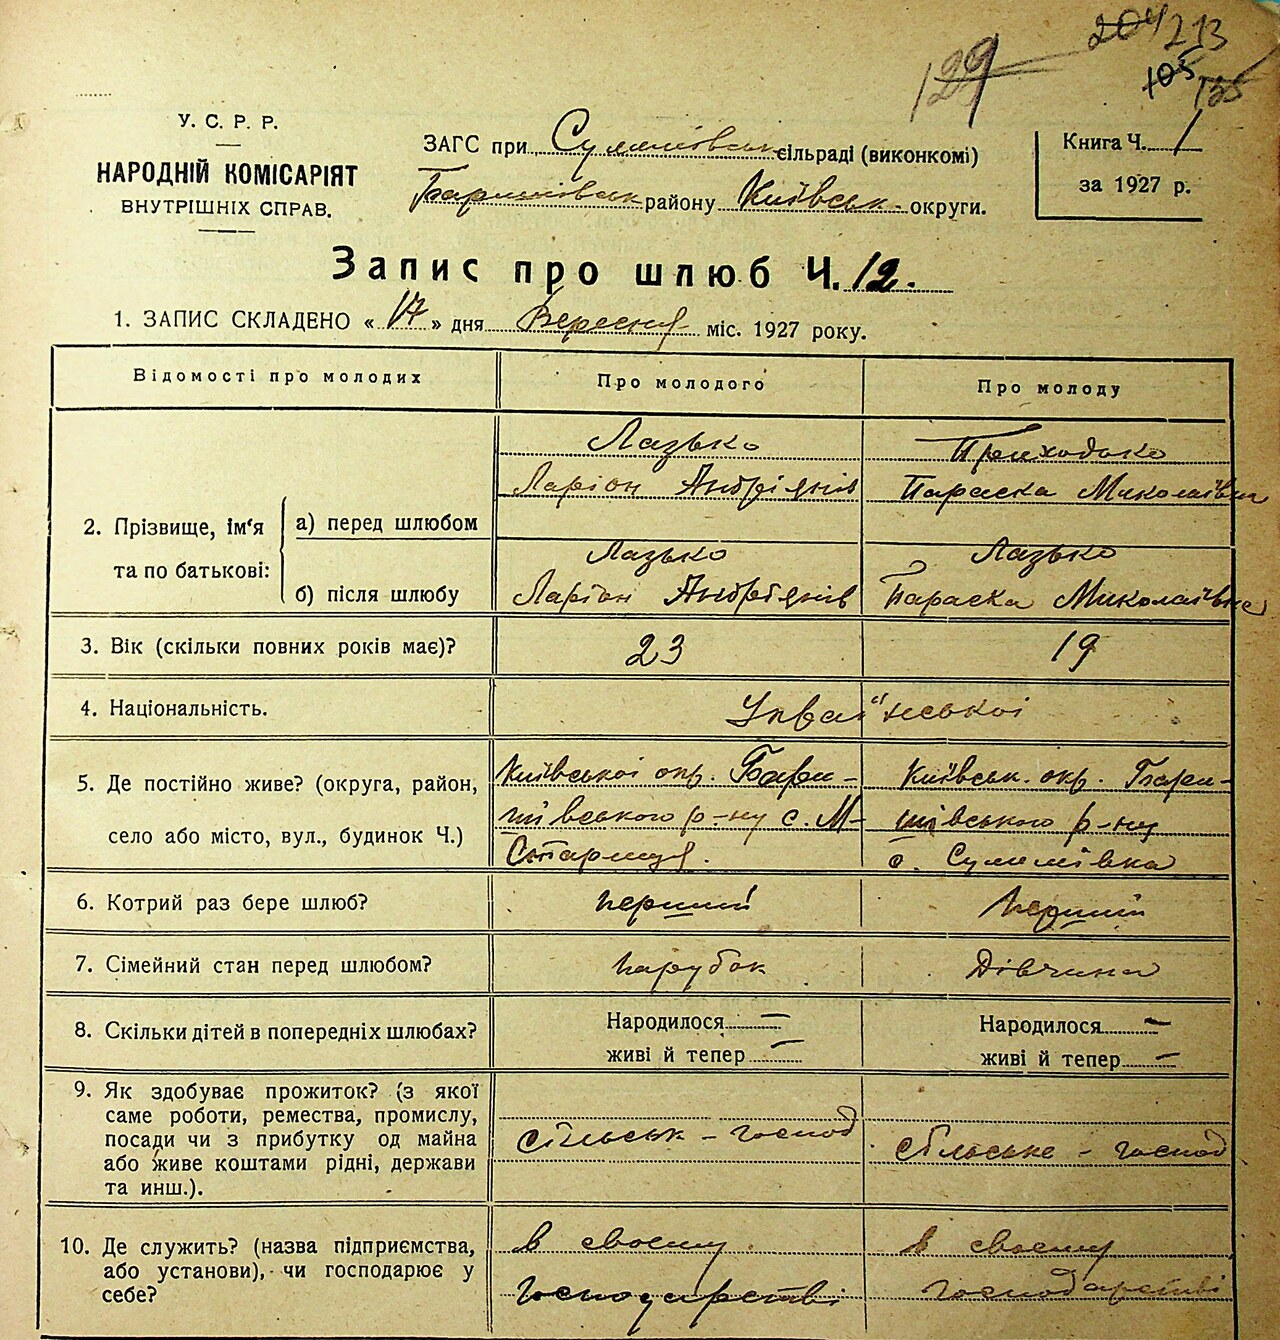 129 204 213
105 125
У. С. Р. Р.
НАРОДНІЙ КОМІСАРІЯТ
ВНУТРІШНІХ СПРАВ.
ЗАГС при Сулимівськ сільраді (виконкомі)
Баришівськ району Київськ. округи.
Книга Ч. 1
за 1927 р.
Запис про шлюб Ч. 12.
1. ЗАПИС СКЛАДЕНО « 17 » дня Вересня міс. 1927 року.
Відомості про молодих
Про молодого
Про молоду
2. Прізвище, ім'я
та по батькові:
а) перед шлюбом
Лазько
Ларіон Андріянів
Приходько
Параска Миколаївна
б) після шлюбу
Лазько
Ларіон Андріянів
Лазько
Параска Миколаївна
3. Вік (скільки повних років має)?
23
19
4. Національність.
Української
5. Де постійно живе? (округа, район,
село або місто, вул., будинок Ч.)
Київської окр. Бари-
шівського р-ну с. М-
Стариця.
Київськ. окр. Бари-
шівського р-ну
с. Сулимівка
6. Котрий раз бере шлюб?
перший
перший
7. Сімейний стан перед шлюбом?
парубок
Дівчина
8. Скільки дітей в попередніх шлюбах?
Народилося —
живі й тепер —
Народилося —
живі й тепер —
9. Як здобуває прожиток? (з якої
саме роботи, ремества, промислу,
посади чи з прибутку од майна
або живе коштами рідні, держави
та инш.).
сільськ - господ
сільське - господ
10. Де служить? (назва підприємства,
або установи), чи господарює у
себе?
в своєму
господарстві
в своєму
господарстві